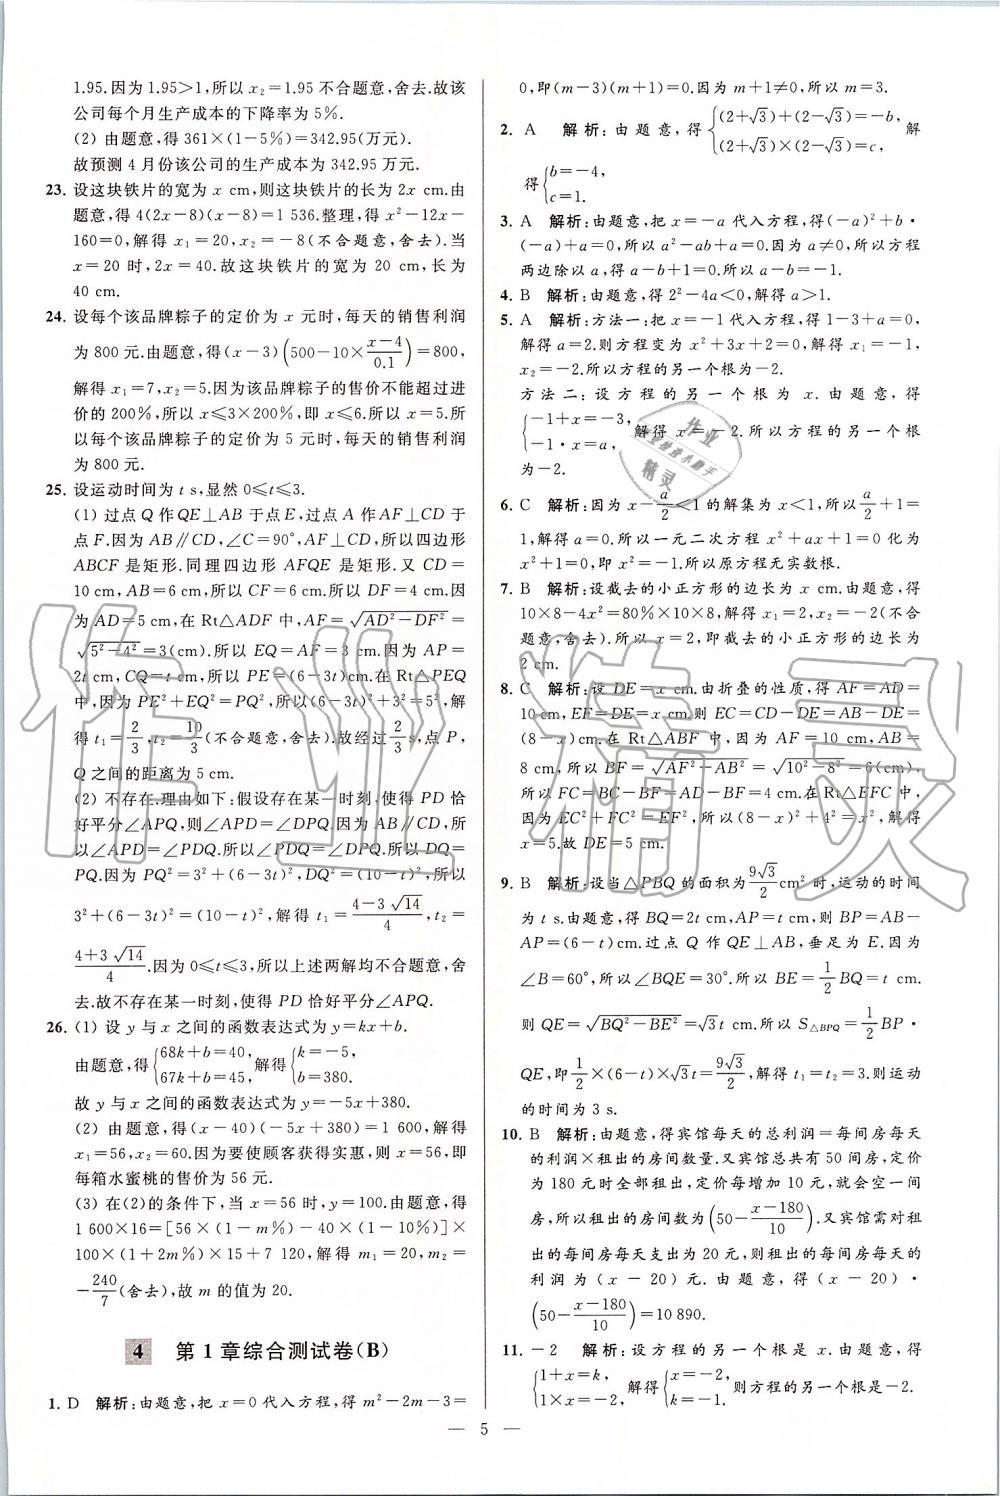 1.95.因为 1.95>1,所以 x₂=1.95 不合题意,舍去.故该
公司每个月生产成本的下降率为 5%.
(2) 由题意,得 361×(1-5%)=342.95(万元).
故预测 4 月份该公司的生产成本为 342.95 万元.
23. 设这块铁片的宽为 x cm,则这块铁片的长为 2x cm.由
题意,得 4(2x-8)(x-8)=1 536.整理,得 x²-12x-
160=0,解得 x₁=20,x₂=-8(不合题意,舍去).当
x=20 时,2x=40.故这块铁片的宽为 20 cm,长为
40 cm.
24. 设每个该品牌粽子的定价为 x 元时,每天的销售利润
为 800 元.由题意,得(x-3)(500-10×(x-4)/0.1)=800,
解得 x₁=7,x₂=5.因为该品牌粽子的售价不能超过进
价的 200%,所以 x≤3×200%,即 x≤6.所以 x=5.所
以每个该品牌粽子的定价为 5 元时,每天的销售利润
为 800 元.
25. 设运动时间为 t s,显然 0≤t≤3.
(1) 过点 Q 作 QE⊥AB 于点 E,过点 A 作 AF⊥CD 于
点 F.因为 AB∥CD,∠C=90°,AF⊥CD,所以四边形
ABCF 是矩形.同理四边形 AFQE 是矩形.又 CD=
10 cm,AB=6 cm,所以 CF=6 cm.所以 DF=4 cm.因
为 AD=5 cm,在 Rt△ADF 中,AF=√(AD²-DF²)=
√(5²-4²)=3(cm).所以 EQ=AF=3 cm.因为 AP=
2t cm,CQ=t cm,所以 PE=(6-3t)cm.在 Rt△PEQ
中,因为 PE²+EQ²=PQ²,所以(6-3t)²+3²=5²,解
得 t₁=2/3,t₂=10/3(不合题意,舍去).故经过 2/3 s,点 P,
Q 之间的距离为 5 cm.
(2) 不存在.理由如下:假设存在某一时刻,使得 PD 恰
好平分∠APQ,则∠APD=∠DPQ.因为 AB∥CD,所
以∠APD=∠PDQ.所以∠DPQ=∠PDQ.所以 DQ=
PQ.因为 PQ²=3²+(6-3t)²,DQ²=(10-t)²,所以
3²+(6-3t)²=(10-t)²,解得 t₁=(4-3√14)/4,t₂=
(4+3√14)/4.因为 0≤t≤3,所以上述两解均不合题意,舍
去.故不存在某一时刻,使得 PD 恰好平分∠APQ.
26. (1) 设 y 与 x 之间的函数表达式为 y=kx+b.
由题意,得{68k+b=40, 67k+b=45, 解得{k=-5, b=380.
故 y 与 x 之间的函数表达式为 y=-5x+380.
(2) 由题意,得(x-40)(-5x+380)=1 600,解得
x₁=56,x₂=60.因为要使顾客获得实惠,所以 x=56,即
每箱水蜜桃的售价为 56 元.
(3) 在(2)的条件下,当 x=56 时,y=100.由题意,得
1 600×16=[56×(1-m%)-40×(1-10%)]×
100×(1+2m%)×15+7 120,解得 m₁=20,m₂=
-240/7(舍去),故 m 的值为 20.
4 第 1 章综合测试卷(B)
1. D 解析:由题意,把 x=0 代入方程,得 m²-2m-3=
0,即(m-3)(m+1)=0.因为 m+1≠0,所以 m=3.
2. A 解析:由题意,得{(2+√3)+(2-√3)=-b, (2+√3)×(2-√3)=c, 解
得{b=-4, c=1.
3. A 解析:由题意,把 x=-a 代入方程,得(-a)²+b·
(-a)+a=0,所以 a²-ab+a=0.因为 a≠0,所以方程
两边除以 a,得 a-b+1=0.所以 a-b=-1.
4. B 解析:由题意,得 2²-4a<0,解得 a>1.
5. A 解析:方法一:把 x=-1 代入方程,得 1-3+a=0,
解得 a=2.则方程变为 x²+3x+2=0,解得 x₁=-1,
x₂=-2.所以方程的另一个根为-2.
方法二:设方程的另一个根为 x.由题意,得
{-1+x=-3, -1·x=a, 解得 x=-2.所以方程的另一个根
为-2.
6. C 解析:因为 x-a/2<1 的解集为 x<1,所以 a/2+1=
1,解得 a=0.所以一元二次方程 x²+ax+1=0 化为
x²+1=0,即 x²=-1.所以原方程无实数根.
7. B 解析:设截去的小正方形的边长为 x cm.由题意,得
10×8-4x²=80%×10×8,解得 x₁=2,x₂=-2(不合
题意,舍去).所以 x=2,即截去的小正方形的边长为
2 cm.
8. C 解析:设 DE=x cm.由折叠的性质,得 AF=AD=
10 cm,EF=DE=x cm.则 EC=CD-DE=AB-DE=
(8-x)cm.在 Rt△ABF 中,因为 AF=10 cm,AB=
8 cm,所以 BF=√(AF²-AB²)=√(10²-8²)=6(cm).
所以 FC=BC-BF=AD-BF=4 cm.在 Rt△EFC 中,
因为 EC²+FC²=EF²,所以(8-x)²+4²=x²,解得
x=5.故 DE=5 cm.
9. B 解析:设当△PBQ 的面积为 9√3/2 cm² 时,运动的时间
为 t s.由题意,得 BQ=2t cm,AP=t cm,则 BP=AB-
AP=(6-t)cm.过点 Q 作 QE⊥AB,垂足为 E.因为
∠B=60°,所以∠BQE=30°.所以 BE=1/2BQ=t cm.
则 QE=√(BQ²-BE²)=√3t cm.所以 S△BPQ=1/2BP·
QE,即 1/2×(6-t)×√3t=9√3/2,解得 t₁=t₂=3.则运动
的时间为 3 s.
10. B 解析:由题意,得宾馆每天的总利润=每间房每天
的利润×租出的房间数量.又宾馆总共有 50 间房,定价
为 180 元时全部租出,定价每增加 10 元,就会空一间
房,所以租出的房间数为(50-(x-180)/10).又宾馆需对租
出的房间每天支出为 20 元,则租出的每间房每天的
利润为(x-20)元.由题意,得(x-20)·
(50-(x-180)/10)=10 890.
11. -2 解析:设方程的另一个根为 x.由题意,得
{1+x=k, 1×x=-2, 解得{x=-2, k=-1. 则方程的另一个根是-2.
— 5 —
作业精灵